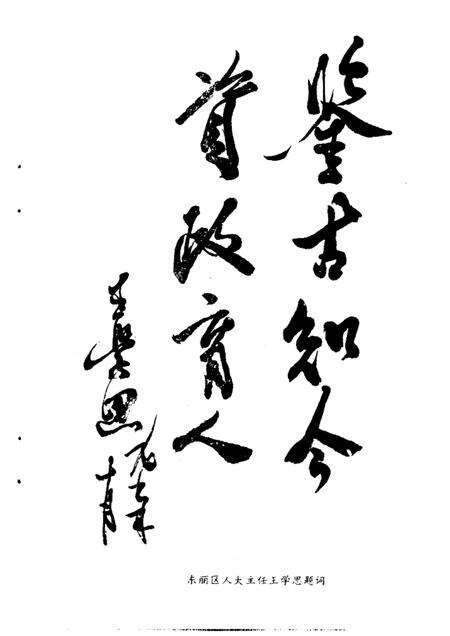 鉴古知今
资政育人
王学思
十月
东丽区人大主任王学思题词